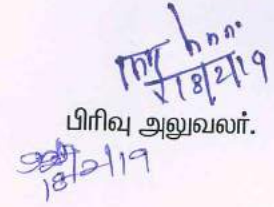 18/2/19
பிரிவு அலுவலர்.
18/2/19